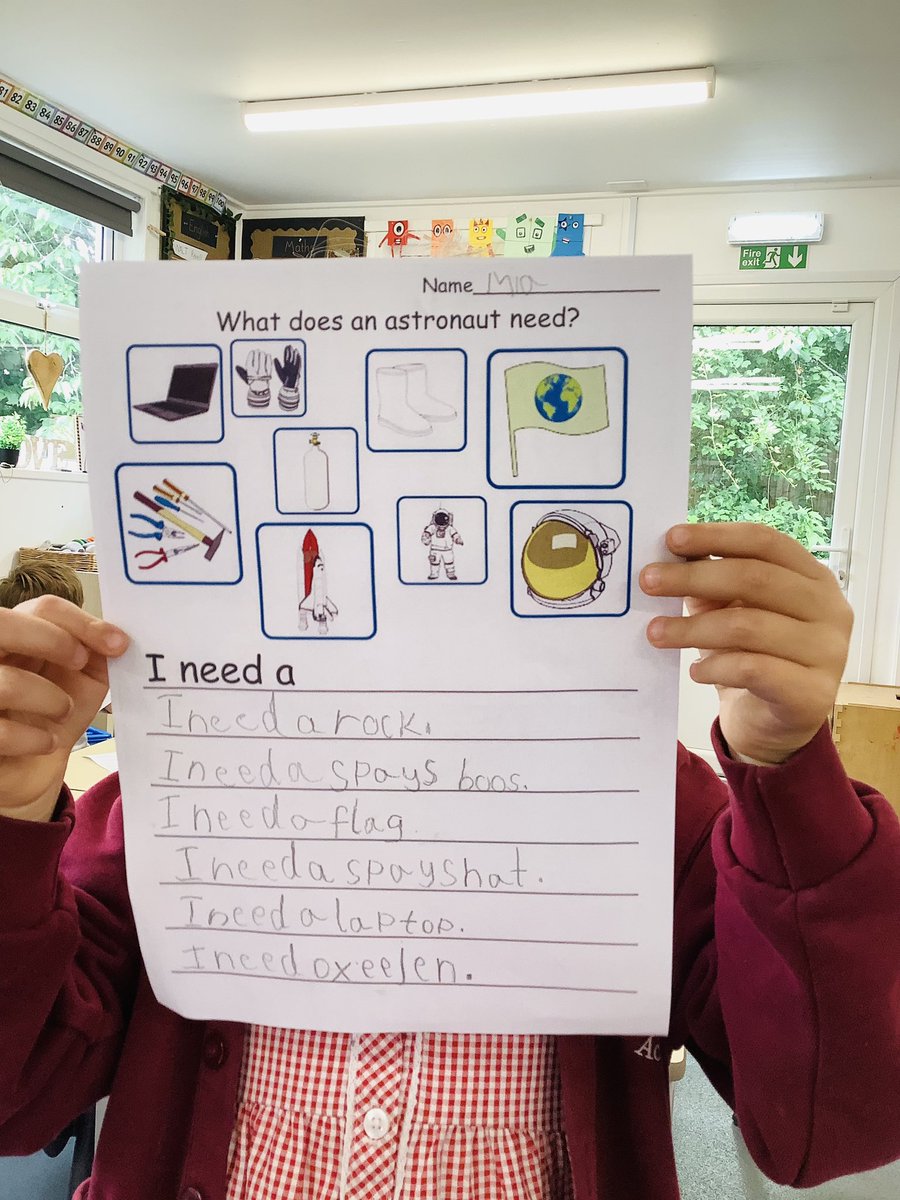 81 82 83 84 85 86 87 88 89 90 91 92 93 94 95 96 97 98 99 100
English
Maths
Fire exit
Name Mia
What does an astronaut need?
I need a
I need a rock.
I need a spays boos.
I need a flag.
I need a spays hat.
I need a laptop.
I need oxeejen.
Ac